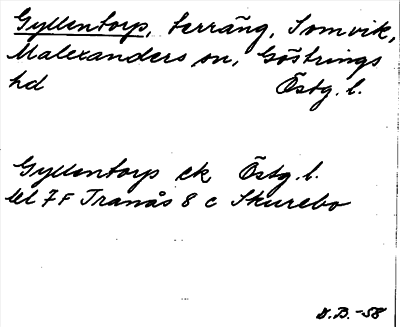 Gyllentorp, terräng, Somvik,
Malexanders sn, Göstrings
hd Östg. l.
Gyllentorp ek Östg. l.
bl 7F Tranås 8 c Skurebo
D.B. -58